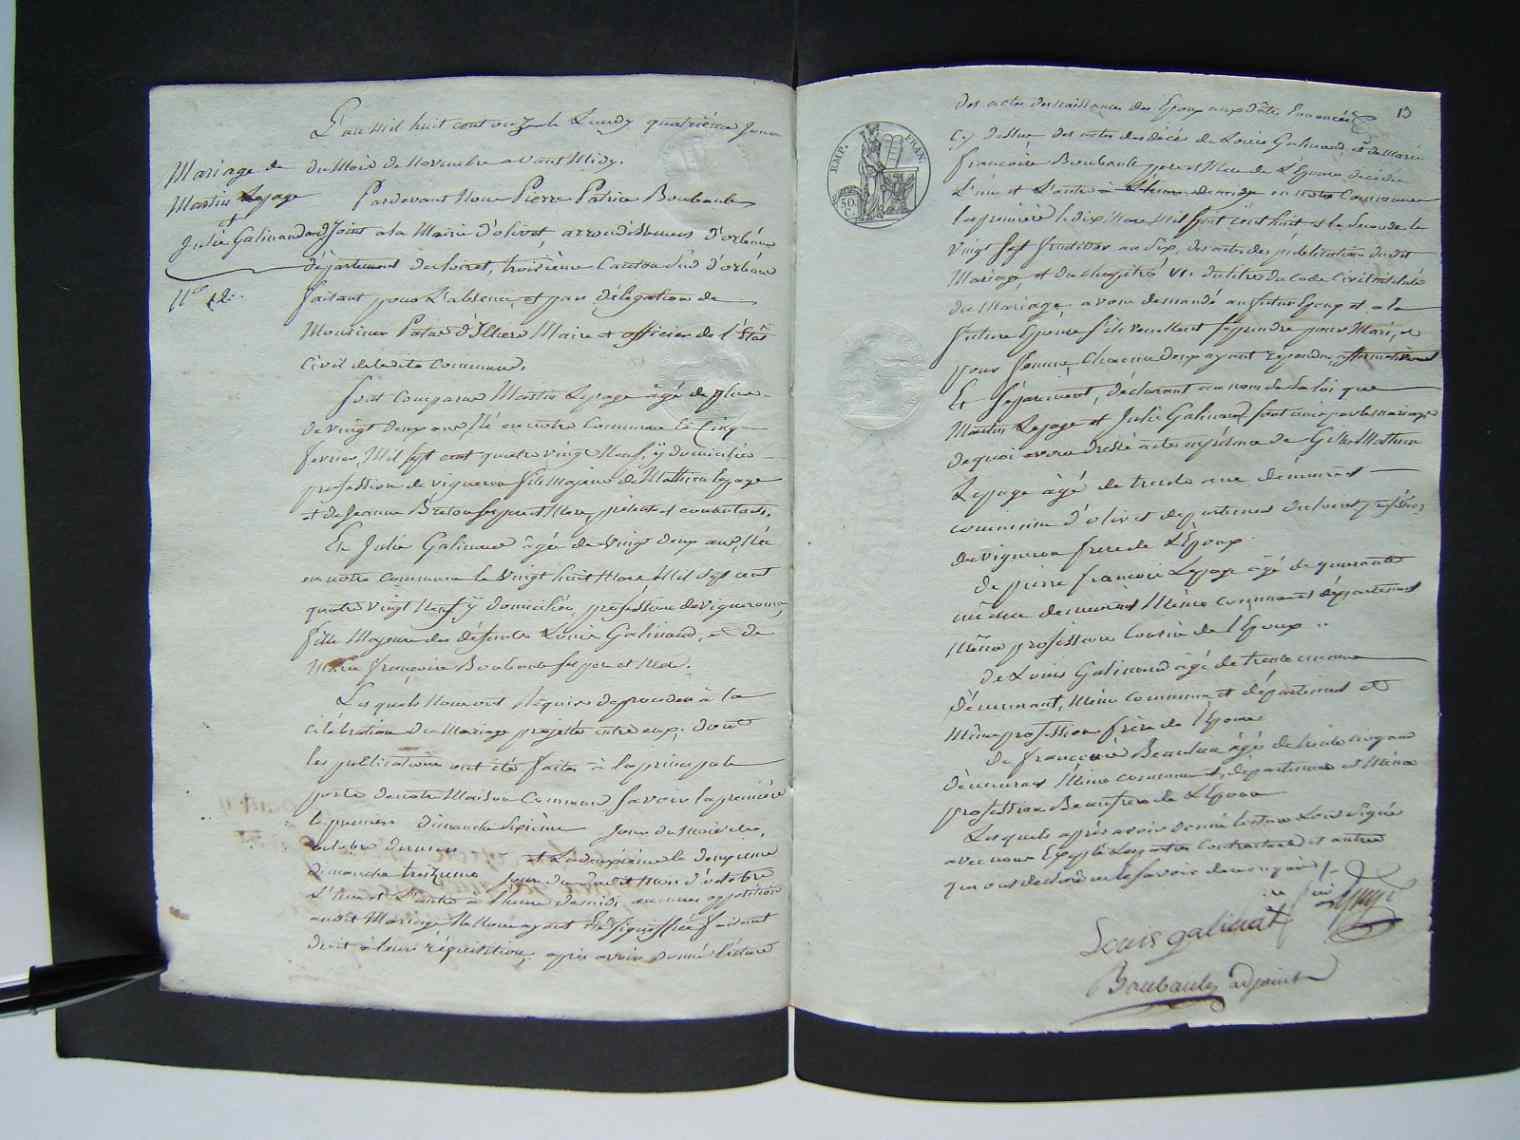 L'an mil huit cent onze le Lundy quatrième jour
Mariage de
Martin Lepage
et
Julie Galinand
du Mois de Novembre avant Midy.
Pardevant Nous Pierre Patrice Boubault
adjoint a la Mairie d'olivet, arrondissement d'orléans
département du loiret, troisième Canton Sud d'orléans
faisant pour L'absence, et par délégation de
Monsieur Patas d'Illiers Maire et officier de l'État
Civil de ladite Commune.
Sont Comparus Martin Lepage âgé de plus
de vingt deux ans Né en notre Commune le Cinq
fevrier Mil Sept cent quatre vingt Neuf, y domicilié
profession de vigneron fils Majeur de Mathieu Lepage
et de Jeanne Breton ses pere et Mere, présents et consentants.
Et Julie Galinand âgée de vingt deux ans, Née
en notre commune le vingt huit Mars Mil Sept cent
quatre vingt Neuf y domiciliée, profession de vigneronne,
fille Majeure des défunts Louis Galinand, et de
Marie françoise Boubault ses pere et Mere.
Lesquels Nous ont Requis de proceder à la
célébration du Mariage projetté entre eux, dont
les publications ont été faites à la principale
porte de notre Maison Commune Savoir la première
le premier dimanche Sixième jour du mois de
octobre dernier et la deuxième le deuxieme
dimanche treizieme jour du dudit mois d'octobre
L'une et L'autre à l'heure de midi, aucunes opposition
audit Mariage Ne Nous ayant Été Signifiée faisant
droit à leur réquisition, après avoir donné lecture
13
EMP. FRAN.
50 C.
des actes de naissances des Epoux aux dates Enoncées
Cy dessus des actes de décès de Louis Galinand et de Marie
françoise Boubault pere et Mere de L'Epouse décédés
L'un et L'autre en notre Commune
le premier le dix Mars Mil Sept cent huit et la Seconde le
vingt Sept fructidor an Six, des actes de publications dudit
Mariage, et du chapitre VI du titre du Code Civil intitulé
du Mariage avons demandé au futur Epoux et a la
future Epouse s'ils veullent se prendre pour Mari, et
pour femme, chacun d'eux ayant repondu affirmativement
Et Séparément, déclarons au nom de la loi que
Martin Lepage et Julie Galinand sont unis par le mariage
de quoi avons dressé acte en présence de Mathieu
Lepage âgé de trente ans demeurant
commune d'olivet departement du loiret profession
de vigneron frere de L'Epoux.
de pierre françois Lepage âgé de quarante
demeurant Même commune et département
Même profession Cousin de l'Epoux
de Louis Galinand âgé de trente
demeurant, Même commune, et département et
Même profession frère de l'Epouse
De françois Beaulieu âgé de trente cinq ans
demeurant Même commune, département et Même
profession Beaufrere de L'Epouse
Lesquels après avoir donné lecture L'ont Signé
avec nous Excepté Les parties Contractantes et autres
qui ont declaré ne le savoir de ce enquis.
Lepage
Louis galinat
Boubault adjoint